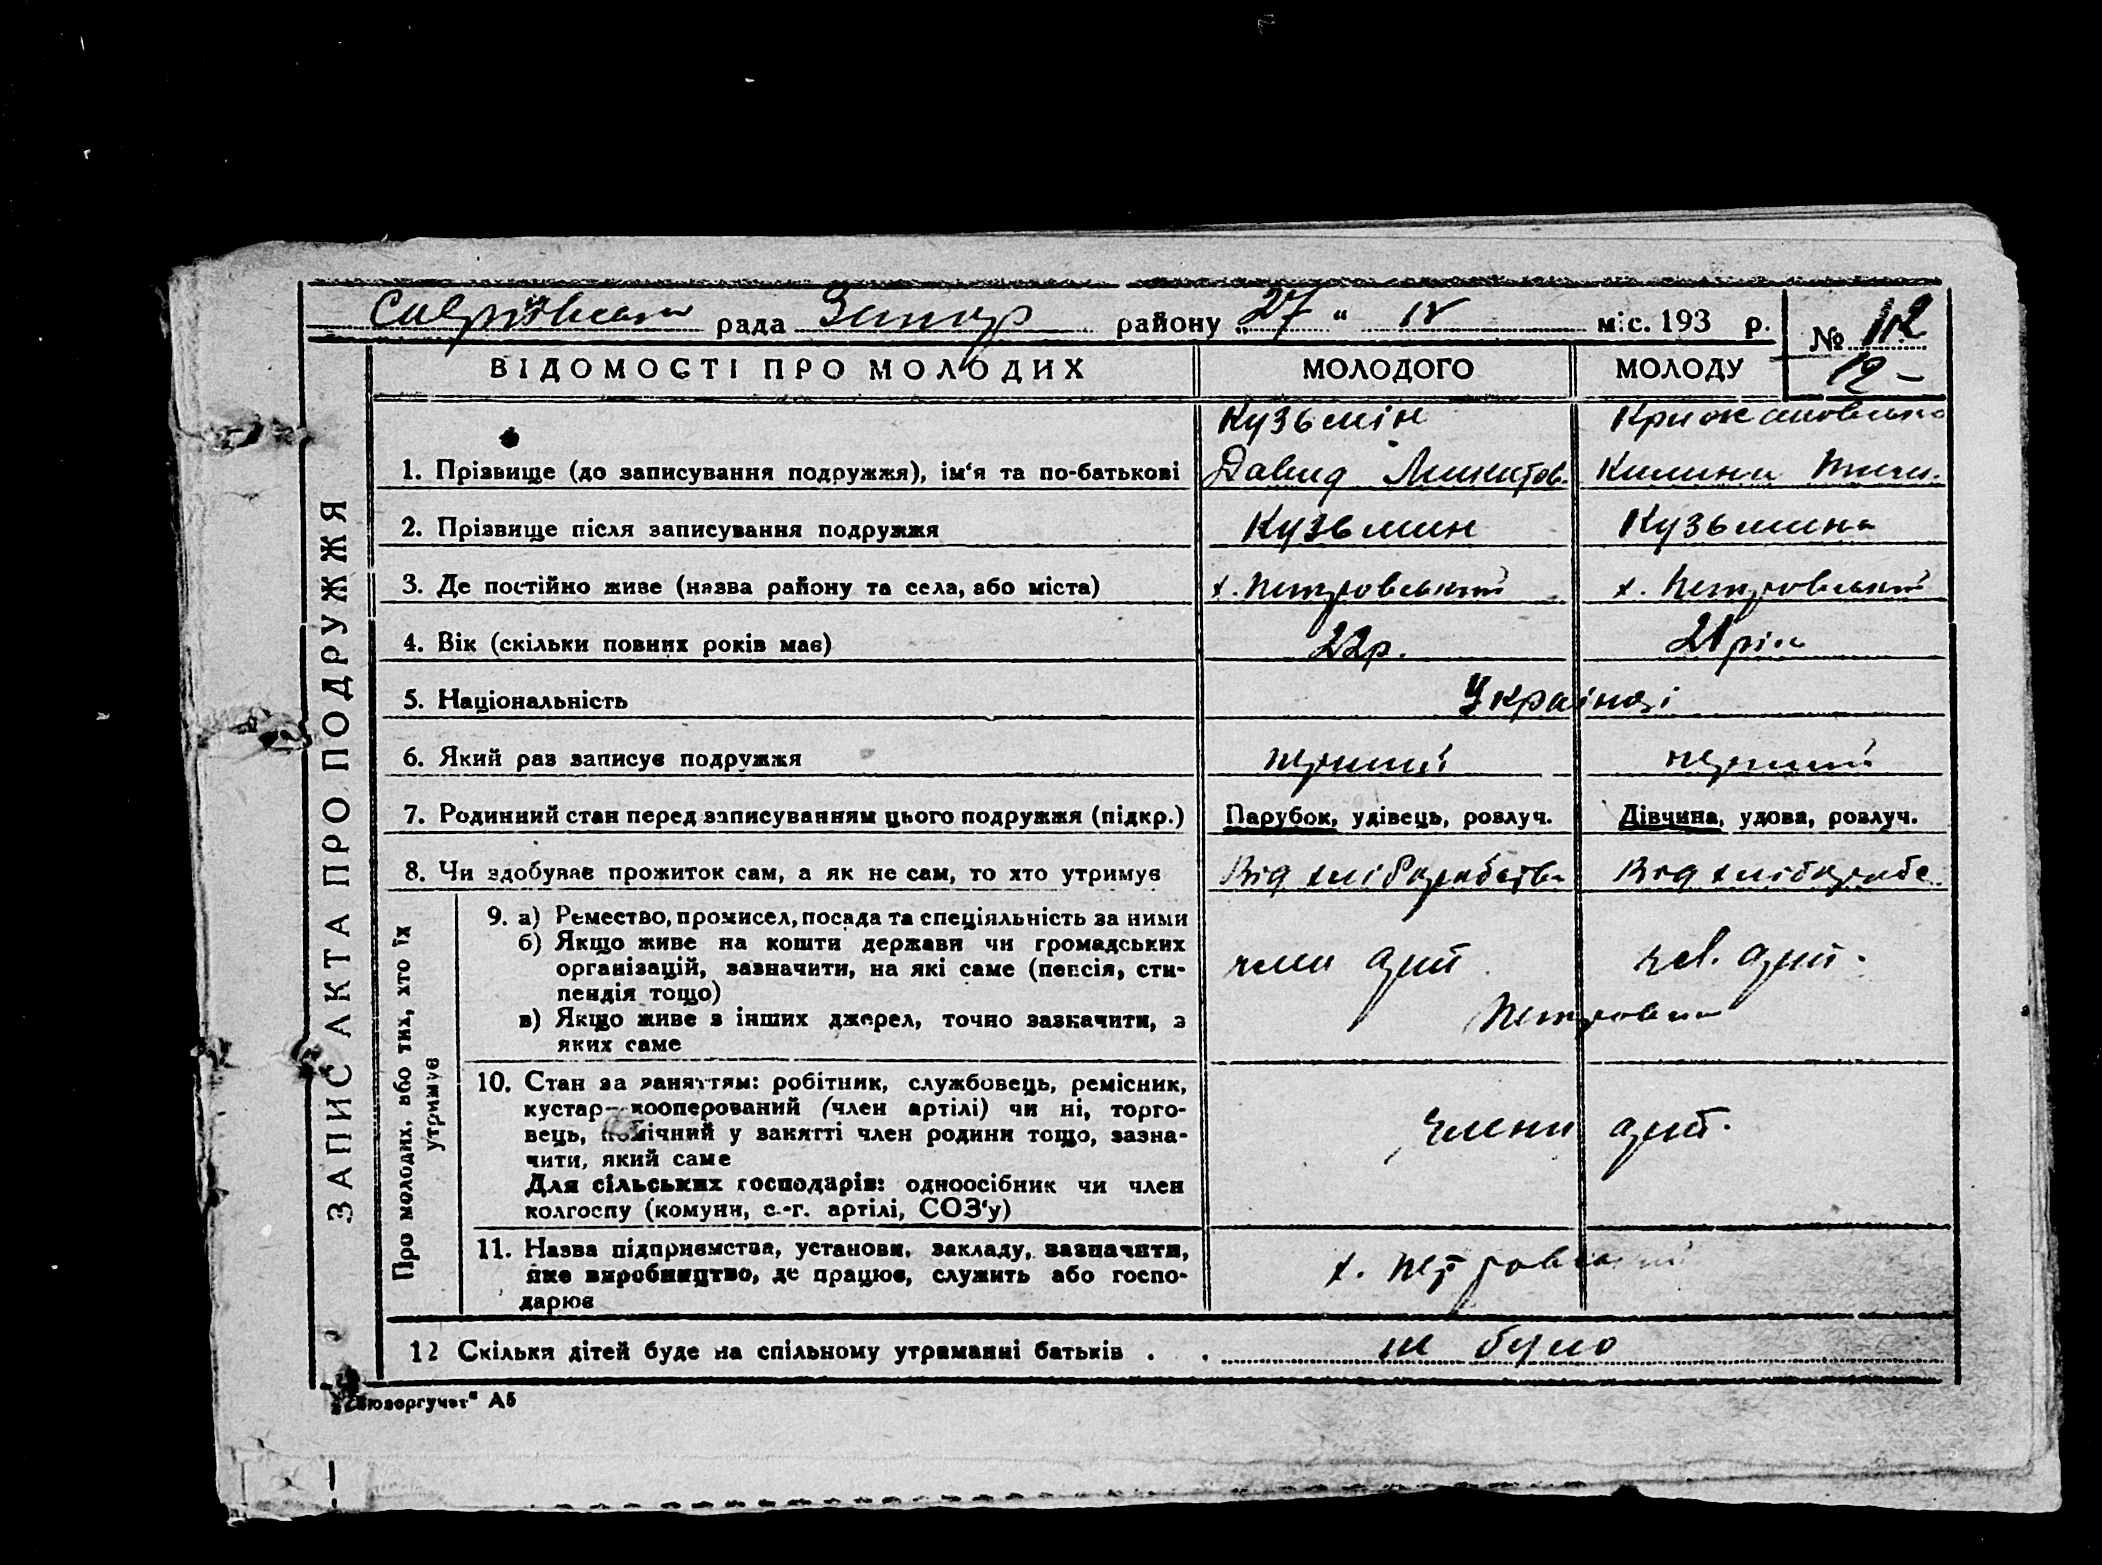 рада району „27“ IV міс. 193 р. № 112
12 –
ВІДОМОСТІ ПРО МОЛОДИХ МОЛОДОГО МОЛОДУ
ЗАПИС АКТА ПРО ПОДРУЖЖЯ
Кузьмін
1. Прізвище (до записування подружжя), ім‘я та по-батькові Давид Микитов. Килина
2. Прізвище після записування подружжя Кузьмин Кузьмина
3. Де постійно живе (назва району та села, або міста) х. Петровський х. Петровський
4. Вік (скільки повних років має) 22 р. 21 рік
5. Національність Українці
6. Який раз записує подружжя перший перший
7. Родинний стан перед записуванням цього подружжя (підкр.) Парубок, удівець, розлуч. Дівчина, удова, розлуч.
8. Чи здобуває прожиток сам, а як не сам, то хто утримує Від хліборобства Від хлібороб
Про молодих, або тих, хто їх утримує
9. а) Ремество, промисел, посада та спеціяльність за ними
б) Якщо живе на кошти держави чи громадських
організацій, зазначити, на які саме (пенсія, сти-
пендія тощо) член арт чл. арт.
в) Якщо живе з інших джерел, точно зазначити, з
яких саме
10. Стан за заняттям: робітник, службовець, ремісник,
кустар-кооперований (член артілі) чи ні, торго-
вець, помічний у занятті член родини тощо, зазна- члени арт.
чити, який саме
Для сільських господарів: одноосібник чи член
колгоспу (комуни, с.-г. артілі, СОЗ‘у)
11. Назва підприємства, установи, закладу, зазначити,
яке виробництво, де працює, служить або госпо- х. Петровський
дарює
12 Скільки дітей буде на спільному утриманні батьків . . не було
„Союзоргучет“ А5